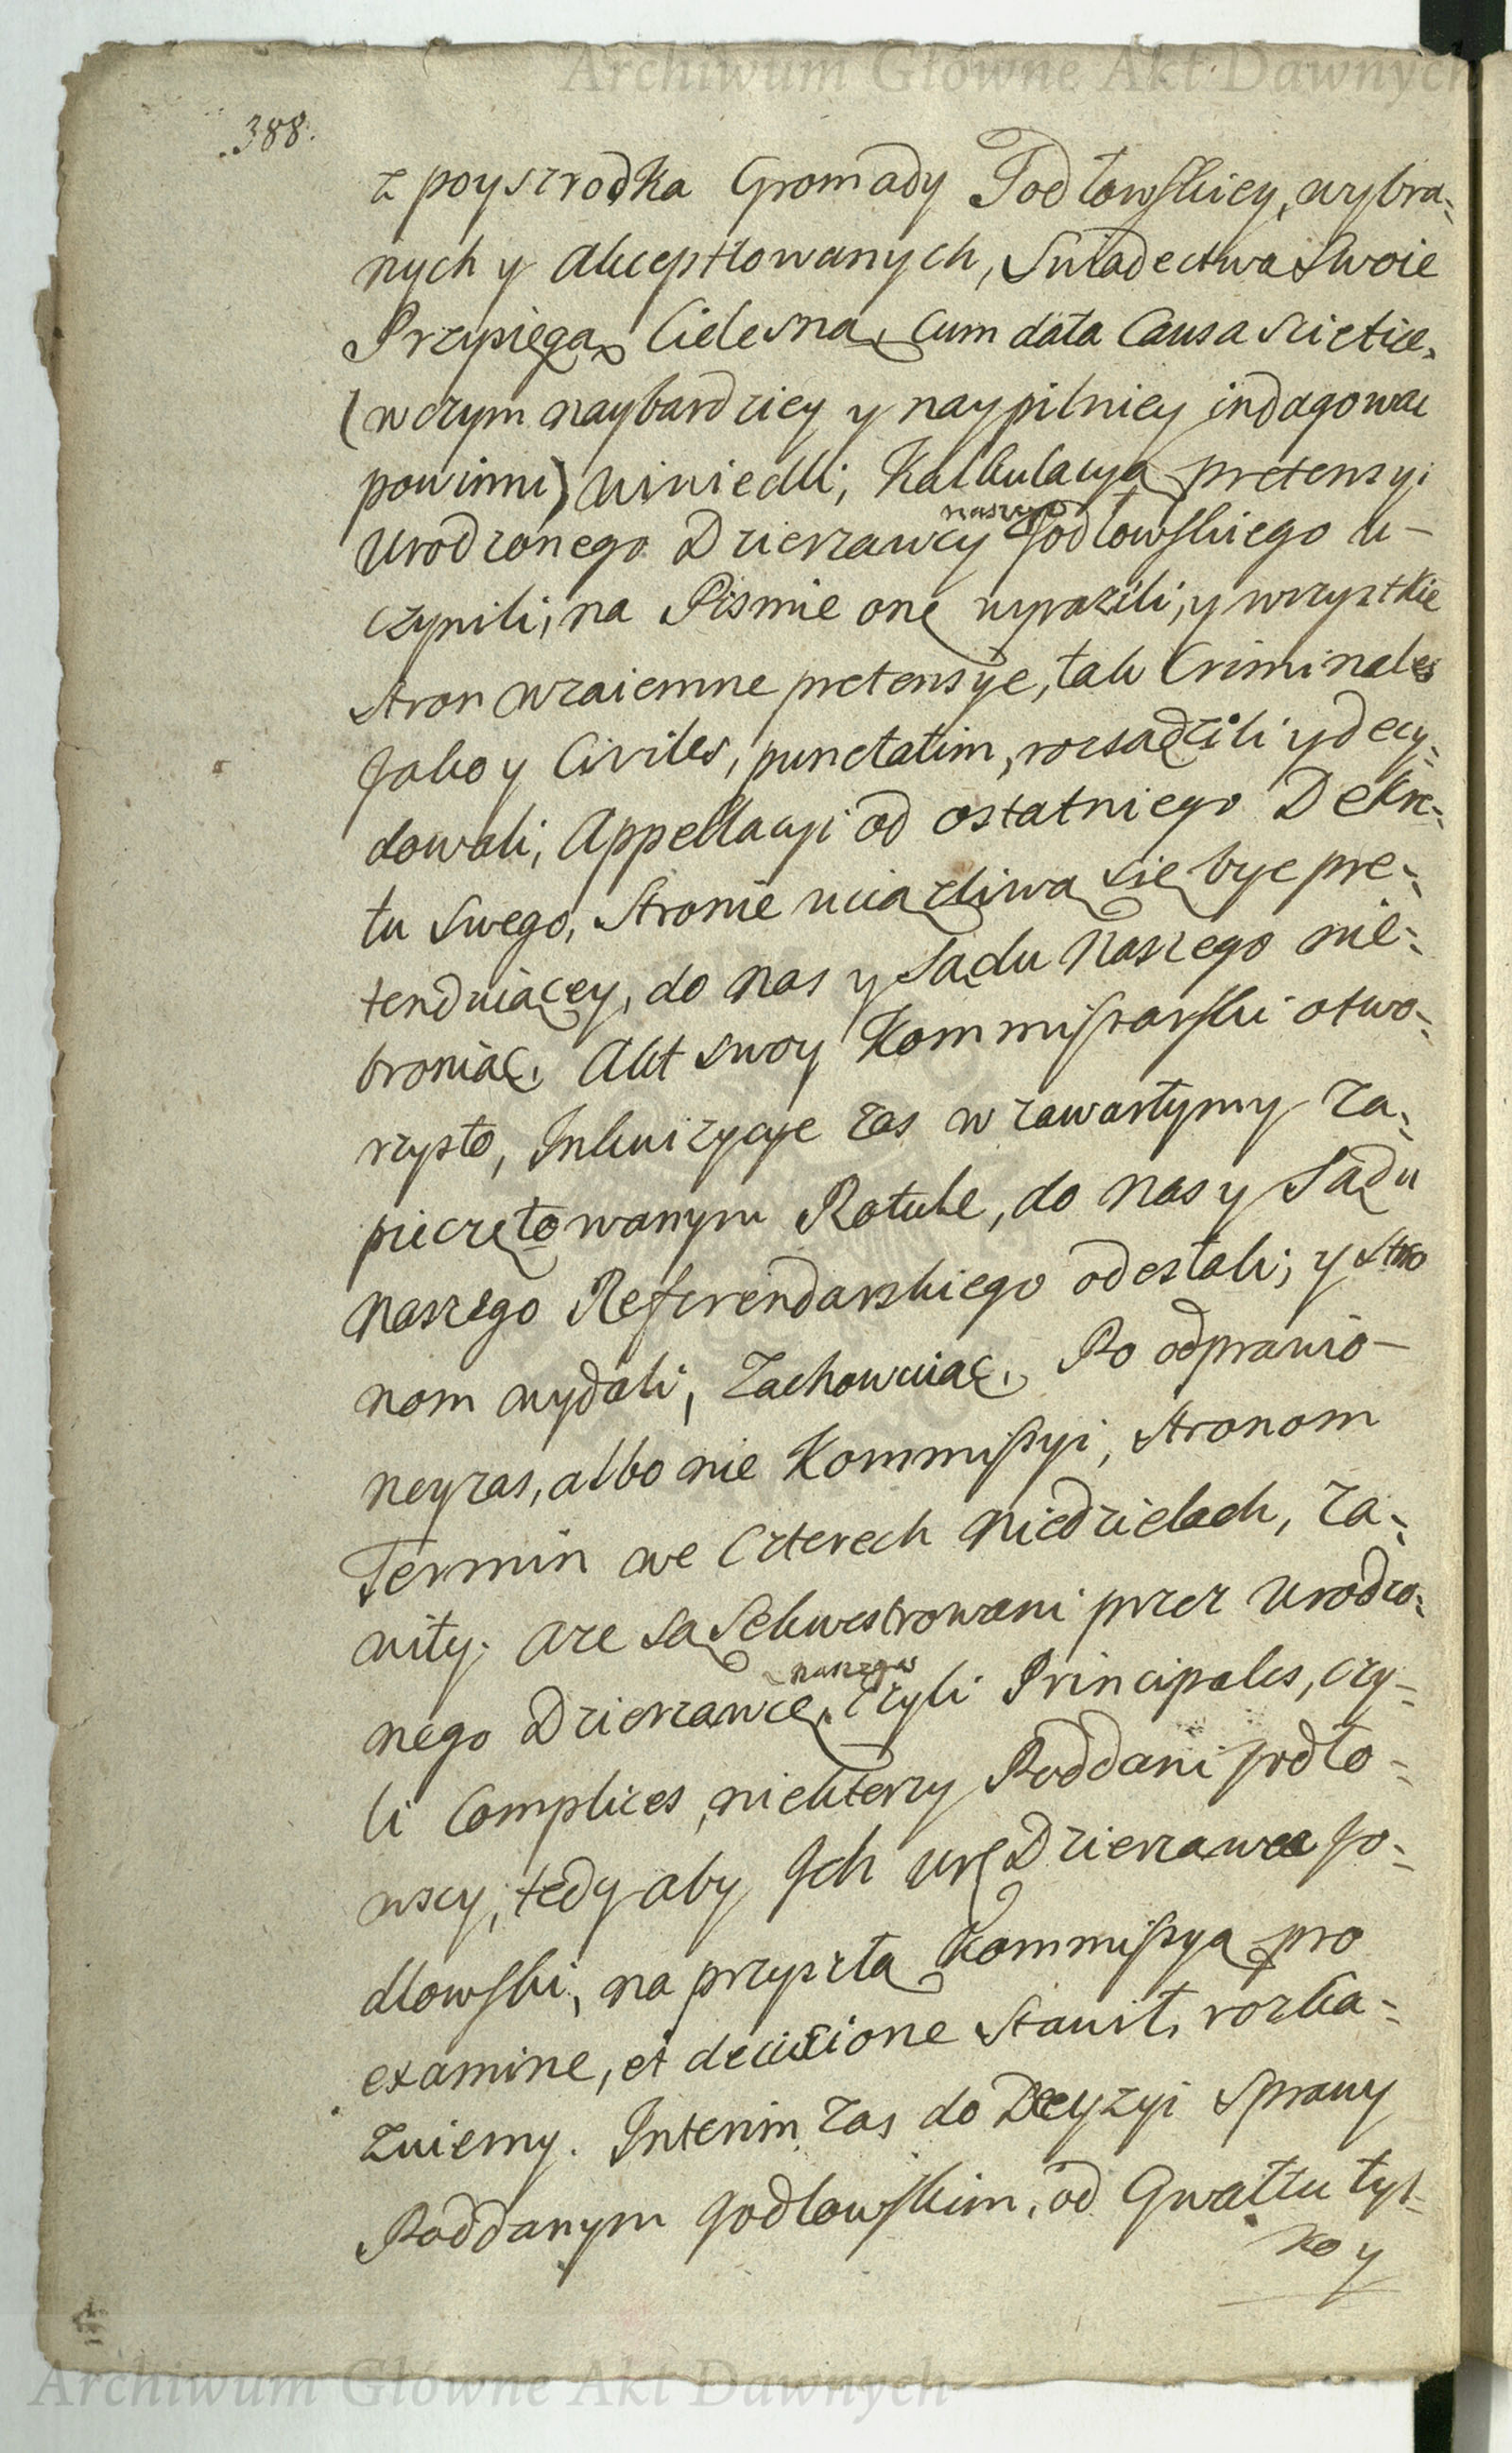 Archiwum Główne Akt Dawnych
.388.
z poyszrodka Gromady Jodłowskiey, wybra-
nych y akceptowanych, Swiadectwa Swoie
Przysięgą Cielesną, Cum data Causa Scietiae,
(w czym naybardziey y naypilniey indagować
powinni) wiwiedli, Kalkulacyą pretensyi
Urodzonego Dzierzawcy naszego Jodłowskiego u-
czynili, na Pismie onę wyrazili, y wszystkie
stron wzaiemne pretensye, tak Criminales
Jako y Civiles, punctatim, rozsądzili y decy-
dowali, Appellacyi od ostatniego Dekre-
tu Swego, Stronie uciązliwą się bydz pre-
tenduiącey, do nas y Sądu Naszego nie-
broniąc. Akt swoy Kommissarski otwo-
rzysto, Inkwizycye zas w zawartym y za-
pieczętowanym Rotule, do nas y Sądu
Naszego Referendarskiego odesłali, y stro
nom wydali, Zachowuiąc. Po odprawio-
ney zas, albo nie Kommissyi, stronom
Termin we Czterech Niedzielach, za-
wity. A ze są Sekwestrowani przez Urodzo-
nego Dzierzawcę, naszego Czyli Principales, czy-
li Complices, niektorzy Poddani Jodło-
wscy, tedy aby Ich Ur Dzierzawca Jo-
dłowski, na przyszłą Kommissyą pro
examine, et decisione stawił, rozka-
zuiemy. Interim zas do Decyzyi Sprawy
Poddanym Jodłowskim, od Gwałtu tyl-
ko y
Archiwum Główne Akt Dawnych